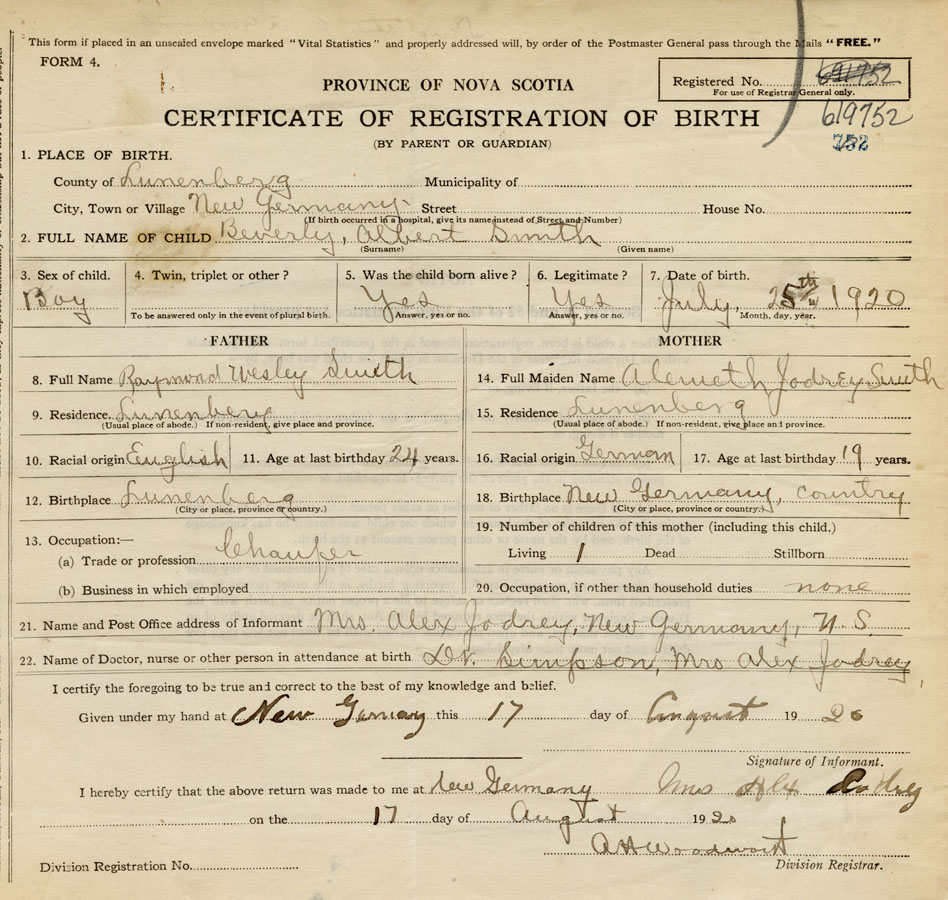 This form if placed in an unsealed envelope marked "Vital Statistics" and properly addressed will, by order of the Postmaster General pass through the Mails "FREE."
FORM 4.
Registered No. 691752
For use of Registrar General only.
PROVINCE OF NOVA SCOTIA
619752
CERTIFICATE OF REGISTRATION OF BIRTH
752
(BY PARENT OR GUARDIAN)
1. PLACE OF BIRTH.
County of Lunenberg Municipality of
City, Town or Village New Germany Street House No.
(If birth occurred in a hospital, give its name instead of Street and Number)
2. FULL NAME OF CHILD Beverly, Albert Smith
(Surname) (Given name)
3. Sex of child. 4. Twin, triplet or other? 5. Was the child born alive? 6. Legitimate? 7. Date of birth.
Boy Yes Yes July, 25th 1920
To be answered only in the event of plural birth. Answer, yes or no. Answer, yes or no. Month, day, year.
FATHER MOTHER
8. Full Name Raymond Wesley Smith
14. Full Maiden Name Alemeth Jodrey Smith
9. Residence. Lunenberg
(Usual place of abode.) If non-resident, give place and province.
15. Residence Lunenberg
(Usual place of abode.) If non-resident, give place and province.
10. Racial origin English 11. Age at last birthday 24 years.
16. Racial origin German 17. Age at last birthday 19 years.
12. Birthplace Lunenberg
(City or place, province or country.)
18. Birthplace New Germany, country
(City or place, province or country.)
13. Occupation:—
(a) Trade or profession Chaufer
(b) Business in which employed
19. Number of children of this mother (including this child.)
Living 1 Dead Stillborn
20. Occupation, if other than household duties none
21. Name and Post Office address of Informant Mrs. Alex Jodrey, New Germany, N. S.
22. Name of Doctor, nurse or other person in attendance at birth Dr. Simpson, Mrs Alex Jodrey,
I certify the foregoing to be true and correct to the best of my knowledge and belief.
Given under my hand at New Germany this 17 day of August 1920
Signature of Informant.
I hereby certify that the above return was made to me at New Germany Mrs Alx Jodrey
on the 17 day of August 1920
A H Woodworth
Division Registration No. Division Registrar.